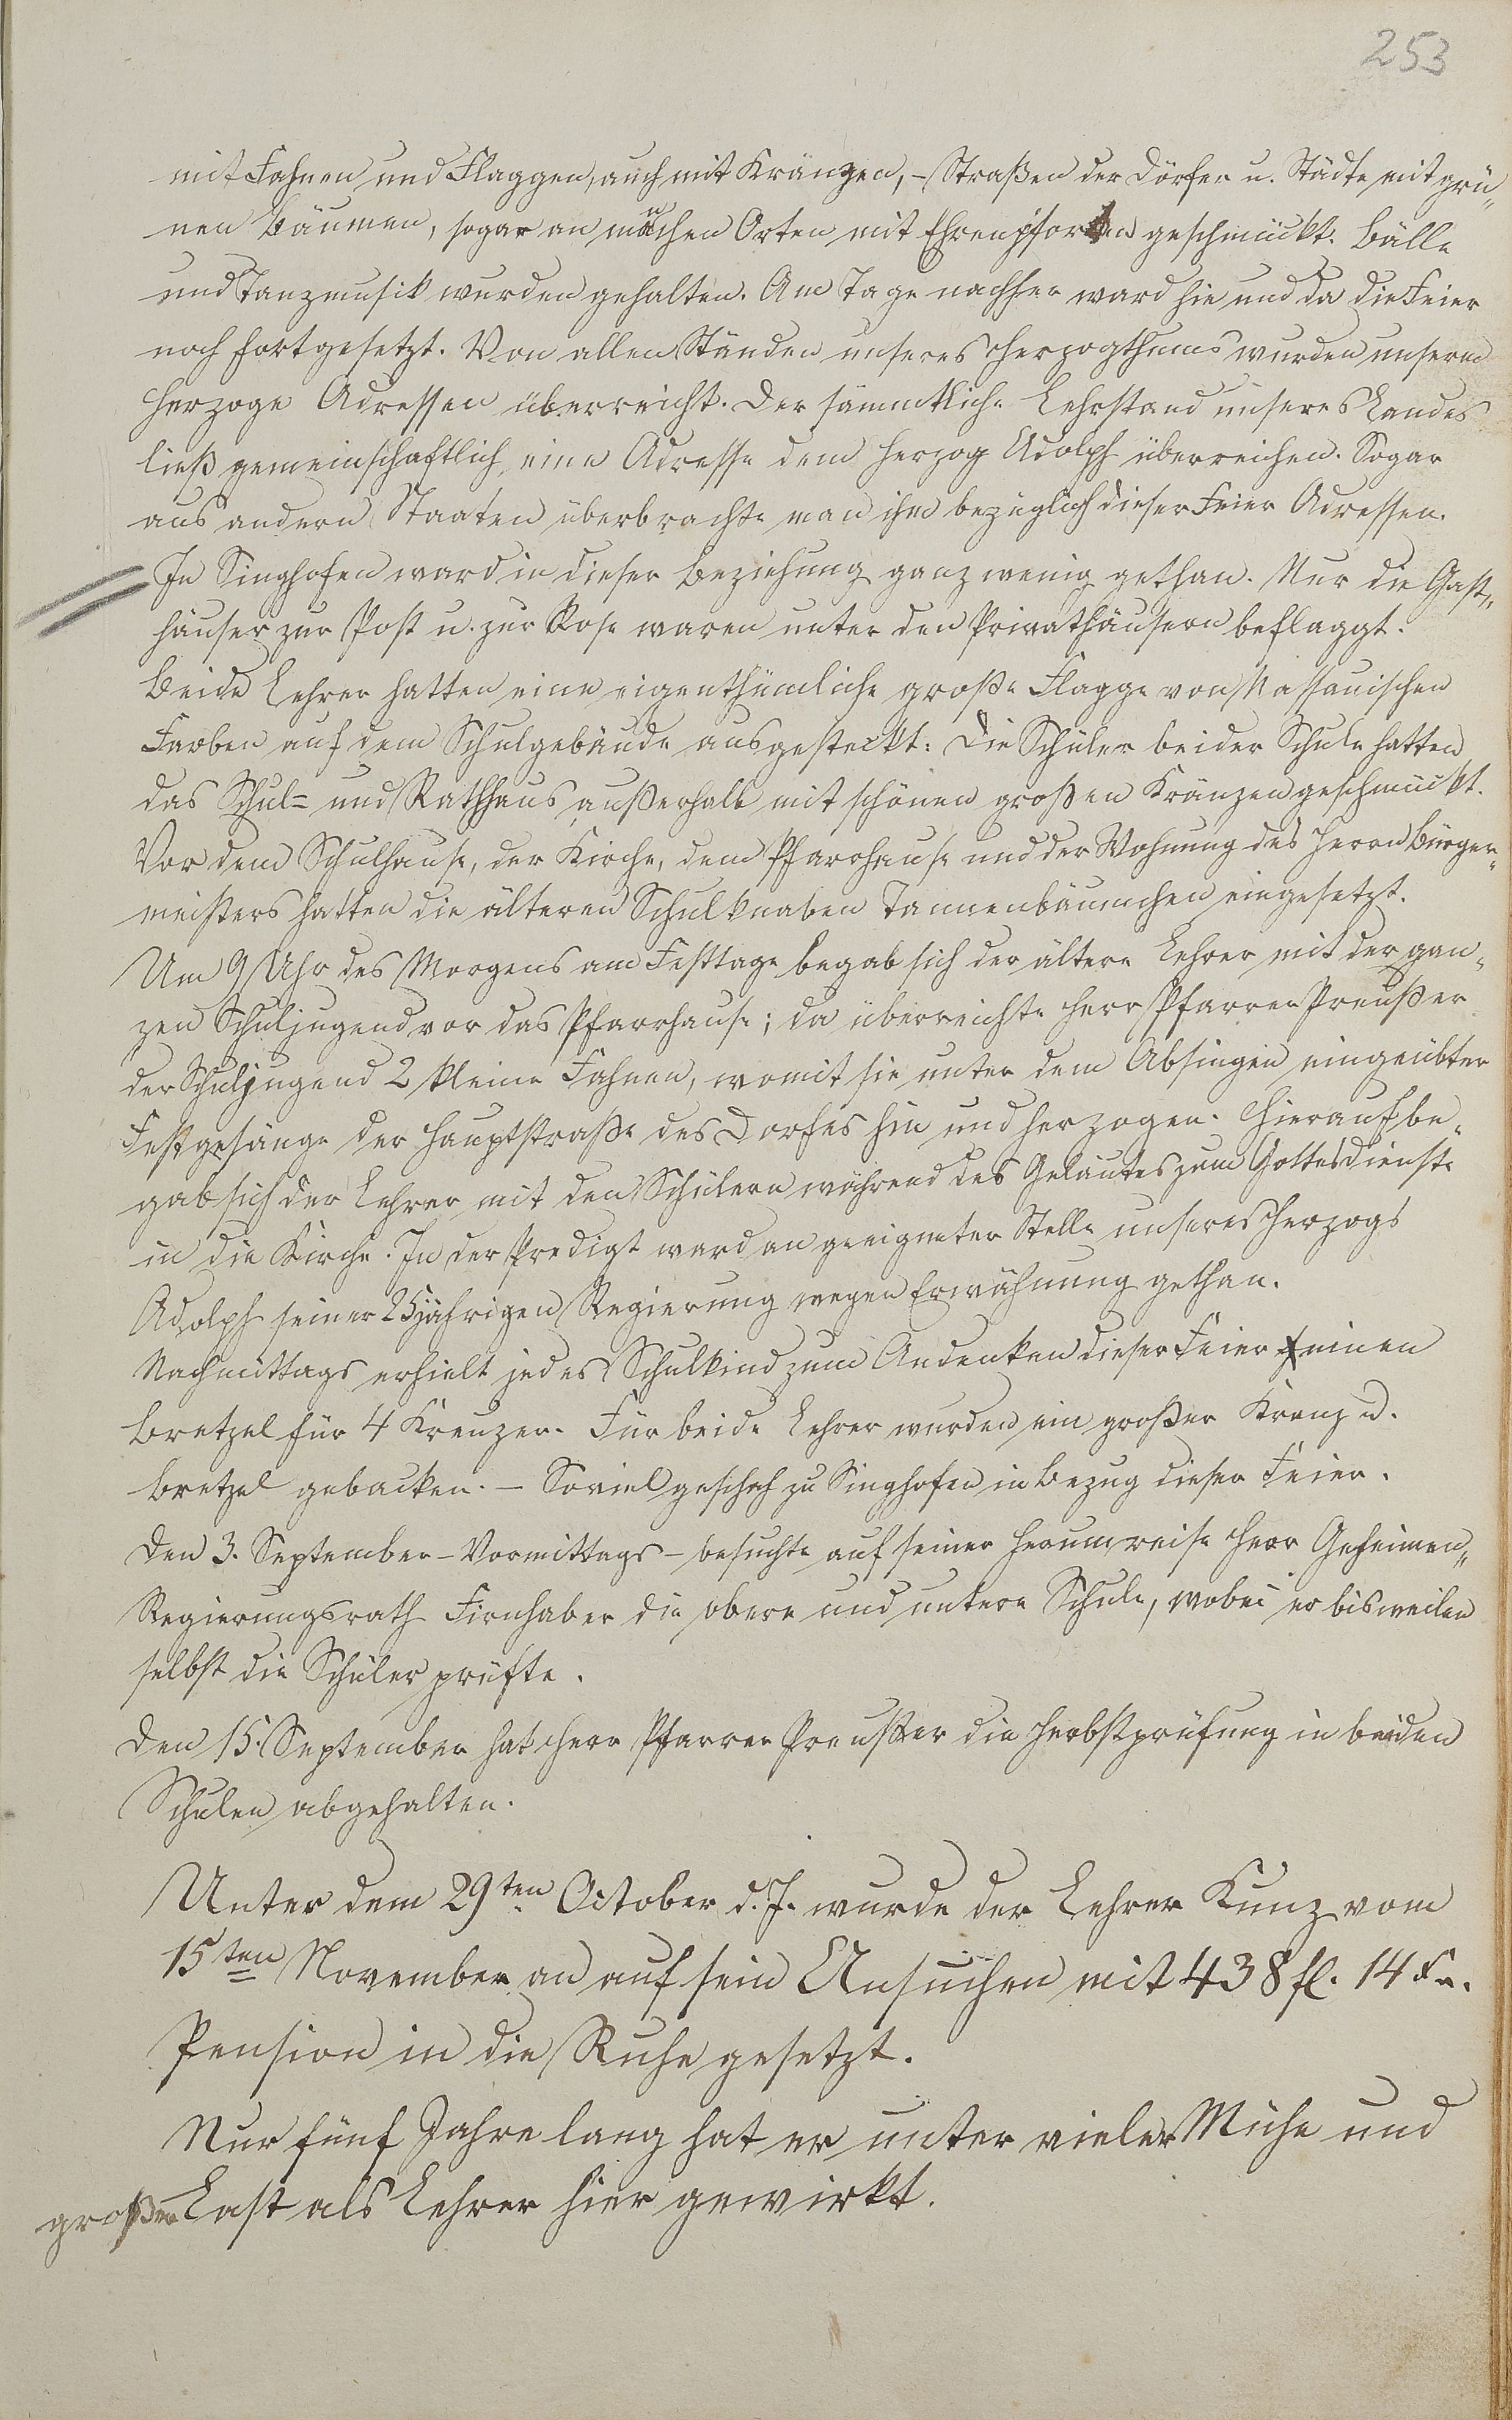 253
mit Fahnen und Flaggen, auch mit Kränzen, – Straßen der Dörfer u. Städte mit grü„
nen Bäumen, sogar an manchen Orten mit Ehrenpforten geschmückt. Bälle
und Tanzmusik wurden gehalten. Am Tage nachher ward hie und da die Feier
noch fortgesetzt. Von allen Ständen unseres Herzogthums wurden unserm
Herzoge Adressen überreicht. Der sämmtliche Lehrstand unseres Landes
ließ gemeinschaftlich eine Adresse dem Herzog Adolph überreichen. Sogar
aus andern Staaten überbrachte man ihm bezüglich dieser Feier Adressen.
In Singhofen ward in dieser Beziehung ganz wenig gethan. Nur die Gast„
häuser zur Post u. zur Rose waren unter den Privathäusern beflaggt.
Beide Lehrer hatten eine eigenthümliche große Flagge von Nassauischen
Farben auf dem Schulgebäude ausgesteckt. Die Schüler beider Schule hatten
das Schul- und Rathhaus außerhalb mit schönen großen Kränzen geschmückt.
Vor dem Schulhause, der Kirche, dem Pfarrhause und der Wohnung des Herrn Bürger„
meisters hatten die älteren Schulknaben Tannenbäumchen eingesetzt.
Um 9 Uhr des Morgens am Festtage begab sich der ältere Lehrer mit der gan„
zen Schuljugend vor das Pfarrhause; da überreichte Herr Pfarrer Preußer
der Schuljugend 2 kleine Fahnen, womit sie unter dem Absingen eingeübter
Festgesänge der Hauptstraße des Dorfes hin und her zogen. Hierauf be„
gab sich der Lehrer mit den Schülern während des Geläutes zum Gottesdienste
in die Kirche. In der Predigt ward an geeigneter Stelle unseres Herzogs
Adolph seiner 25jährigen Regierung wegen Erwähnung gethan.
Nachmittags erhielt jedes Schulkind zum Andenken dieser Feier einen
Bretzel für 4 Kreuzer. Für beide Lehrer wurden ein großer Kranz u.
Bretzel gebacken. – Soviel geschah zu Singhofen in Bezug dieser Feier.
Den 3. September – Vormittags – besuchte auf seiner Herumreise Herr Geheimen„
Regierungsrath Firnhaber die obere und untere Schule, wobei er bisweilen
selbst die Schüler prüfte.
Den 15. September hat Herr Pfarrer Preußer die Herbstprüfung in beiden
Schulen abgehalten.
Unter dem 29ten October d. J. wurde der Lehrer Kunz vom
15ten November an auf sein Ansuchen mit 438 fl. 14 Kr.
Pension in die Ruhe gesetzt.
Nur fünf Jahre lang hat er unter vieler Mühe und
großer Last als Lehrer hier gewirkt.